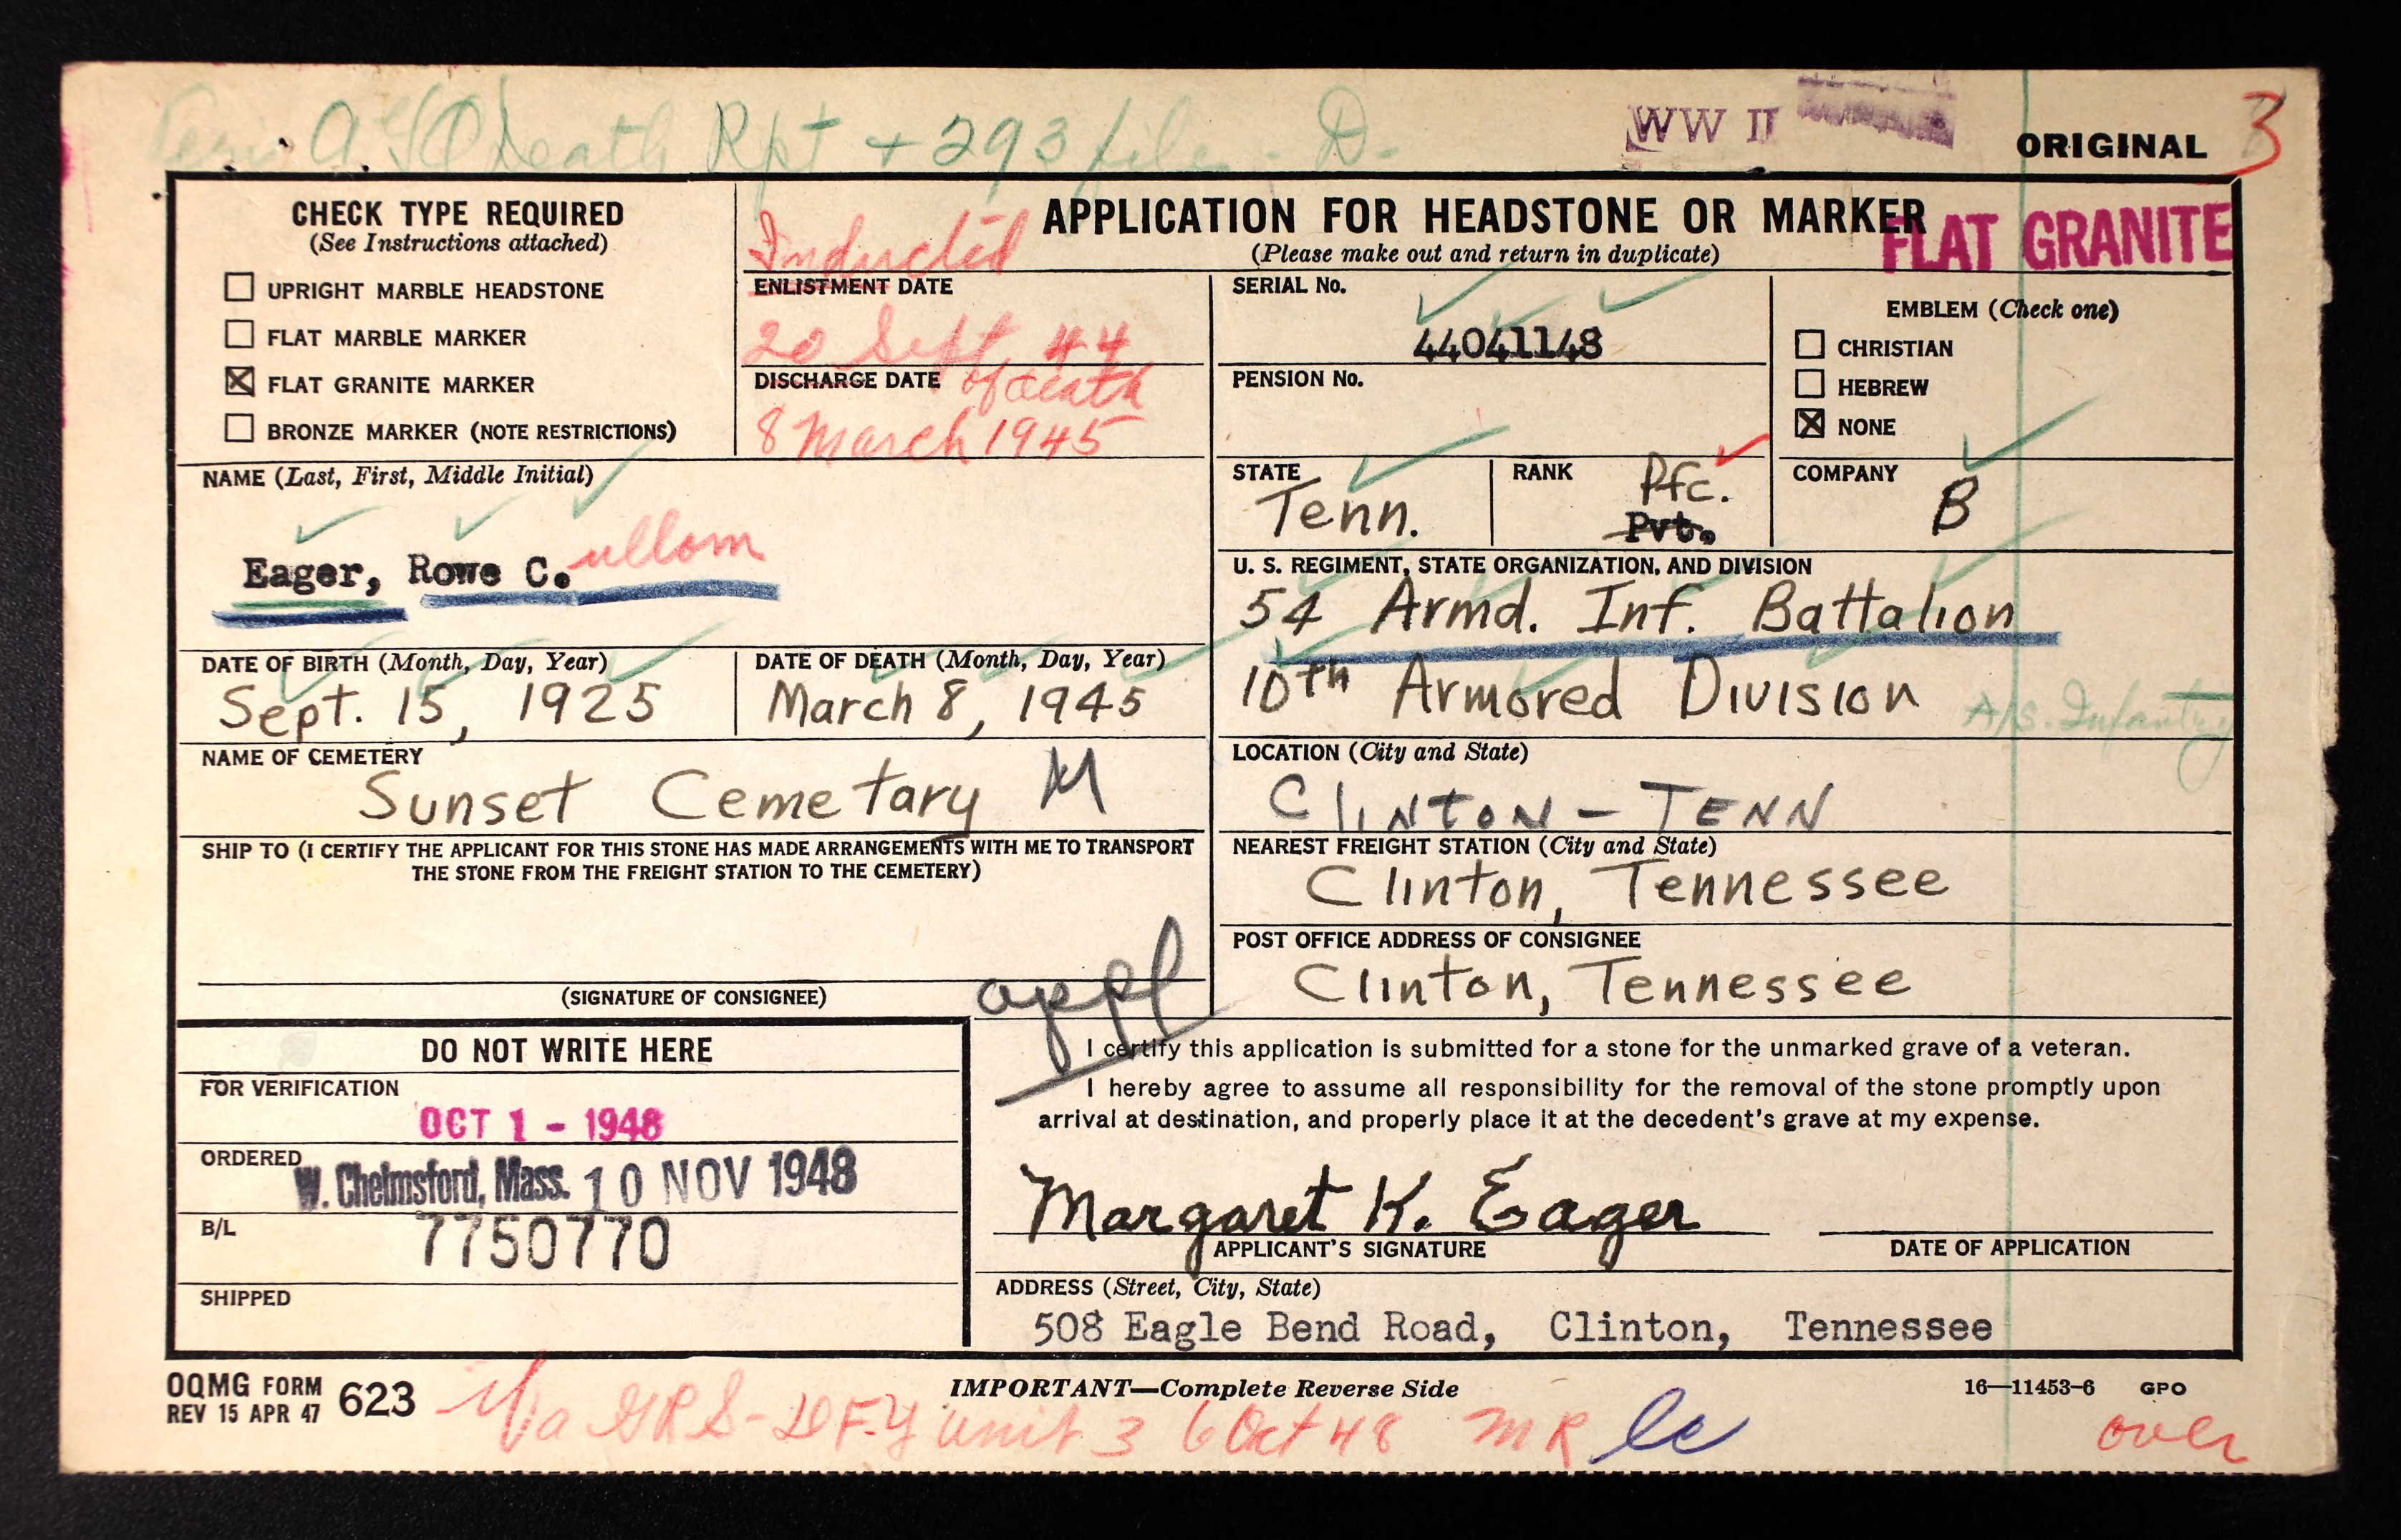 Death Rpt + 293 file - D.
WW II
ORIGINAL 3
CHECK TYPE REQUIRED
(See Instructions attached)
UPRIGHT MARBLE HEADSTONE
FLAT MARBLE MARKER
FLAT GRANITE MARKER
BRONZE MARKER (NOTE RESTRICTIONS)
Inducted
ENLISTMENT DATE
20 Sept, 44
DISCHARGE DATE of death
8 March 1945
APPLICATION FOR HEADSTONE OR MARKER
(Please make out and return in duplicate)
FLAT GRANITE
SERIAL No.
44041148
PENSION No.
EMBLEM (Check one)
CHRISTIAN
HEBREW
NONE
NAME (Last, First, Middle Initial)
Eager, Rowe C.ullom
STATE
Tenn.
RANK
Pfc.
Pvt.
COMPANY
B
U. S. REGIMENT, STATE ORGANIZATION, AND DIVISION
54 Armd. Inf. Battalion
10th Armored Division
A/S. Infantry
DATE OF BIRTH (Month, Day, Year)
Sept. 15, 1925
DATE OF DEATH (Month, Day, Year)
March 8, 1945
NAME OF CEMETERY
Sunset Cemetary M
LOCATION (City and State)
CLINTON - TENN
SHIP TO (I CERTIFY THE APPLICANT FOR THIS STONE HAS MADE ARRANGEMENTS WITH ME TO TRANSPORT
THE STONE FROM THE FREIGHT STATION TO THE CEMETERY)
(SIGNATURE OF CONSIGNEE)
appl
NEAREST FREIGHT STATION (City and State)
Clinton, Tennessee
POST OFFICE ADDRESS OF CONSIGNEE
Clinton, Tennessee
DO NOT WRITE HERE
FOR VERIFICATION
OCT 1 - 1948
ORDERED
W. Chelmsford, Mass. 10 NOV 1948
B/L
7750770
SHIPPED
I certify this application is submitted for a stone for the unmarked grave of a veteran.
I hereby agree to assume all responsibility for the removal of the stone promptly upon
arrival at destination, and properly place it at the decedent's grave at my expense.
Margaret K. Eager
APPLICANT'S SIGNATURE
DATE OF APPLICATION
ADDRESS (Street, City, State)
508 Eagle Bend Road, Clinton, Tennessee
OQMG FORM 623
REV 15 APR 47
IMPORTANT—Complete Reverse Side
16—11453-6 GPO
unit 3 6 Oct 48 MR
over